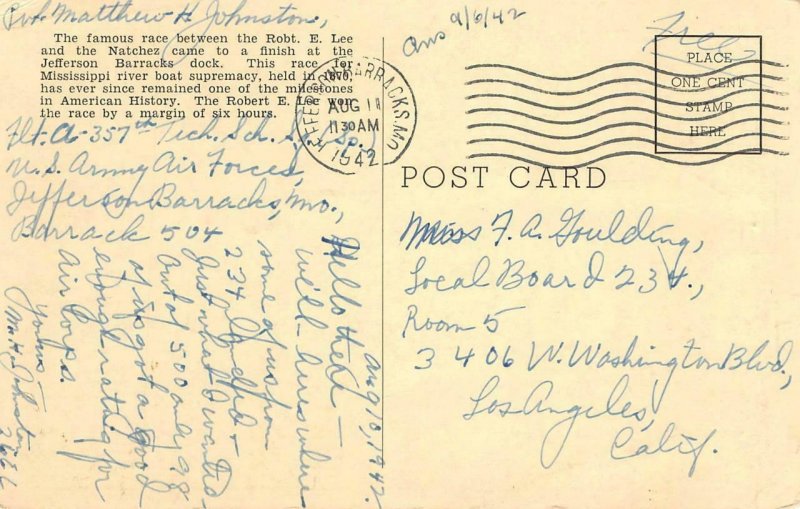 Pvt. Matthew H. Johnston,
The famous race between the Robt. E. Lee
and the Natchez came to a finish at the
Jefferson Barracks dock. This race for
Mississippi river boat supremacy, held in 1870,
has ever since remained one of the milestones
in American History. The Robert E. Lee won
the race by a margin of six hours.
Flt. A-357th Tech. Sch. (Sp.)
U.S. Army Air Forces,
Jefferson Barracks, Mo.,
Barrack 504
Aug 10, 1942.
Hello there—
well here's where
some of us from
234 landed—
Just what I wanted
out of 500 only 98
of us got a good
enough rating for
Air Corps.
Yours
M. H. Johnston
Ans 9/6/42
Free
JEFFERSON BARRACKS, MO.
AUG 11
11 30 AM
1942
PLACE
ONE CENT
STAMP
HERE
POST CARD
Miss F. A. Goulding,
Local Board 234,
Room 5
3406 W. Washington Blvd,
Los Angeles,
Calif.